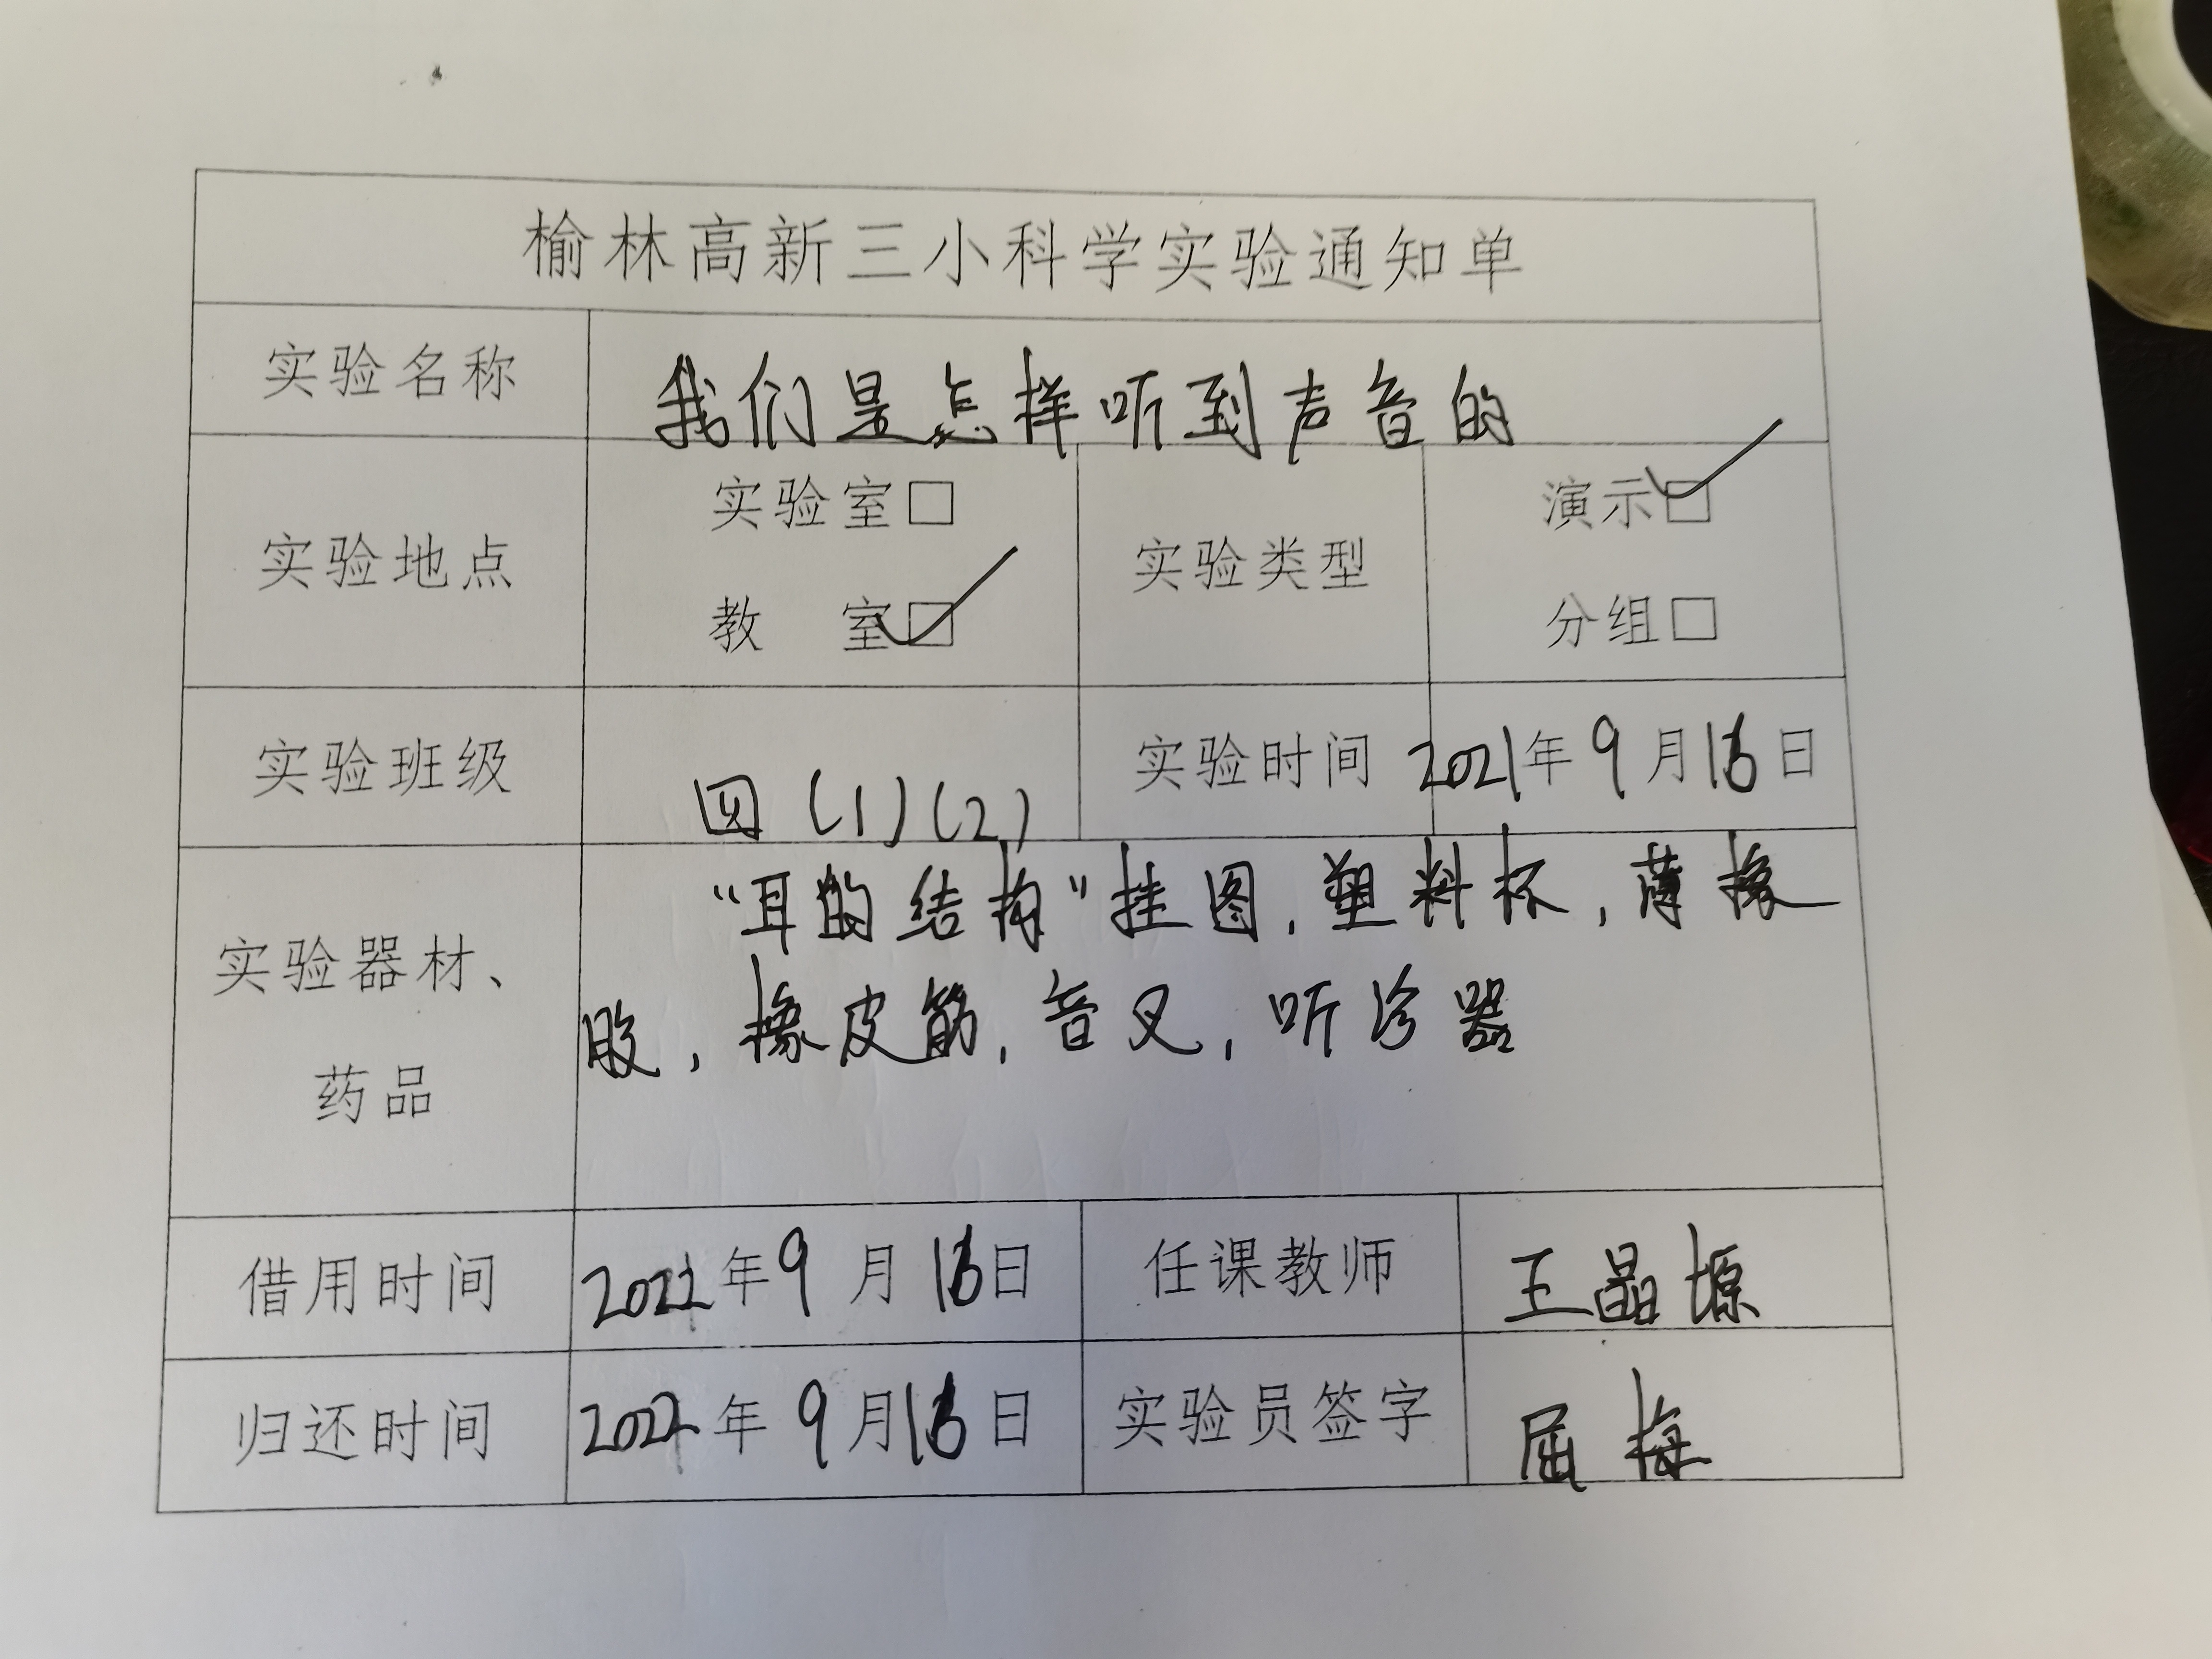 榆林高新三小科学实验通知单
实验名称 我们是怎样听到声音的
实验地点 实验室□ 教 室☑ 实验类型 演示☑ 分组□
实验班级 四(1)(2) 实验时间 2021年9月16日
实验器材、药品 “耳的结构”挂图,塑料杯,薄橡
胶,橡皮筋,音叉,听诊器
借用时间 年9月16日 任课教师 王晶塬
归还时间 2022年9月16日 实验员签字 屈梅